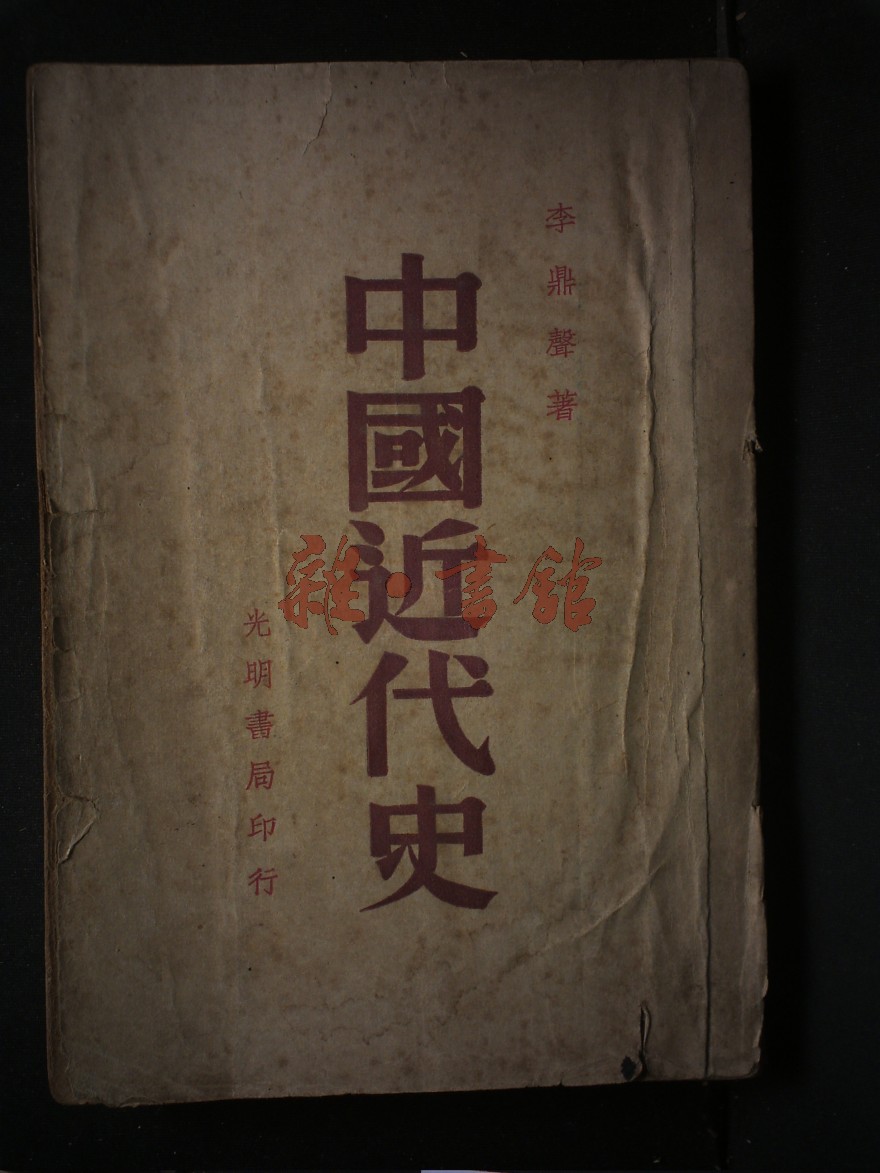 李鼎聲著
中國近代史
光明書局印行
雜·書館